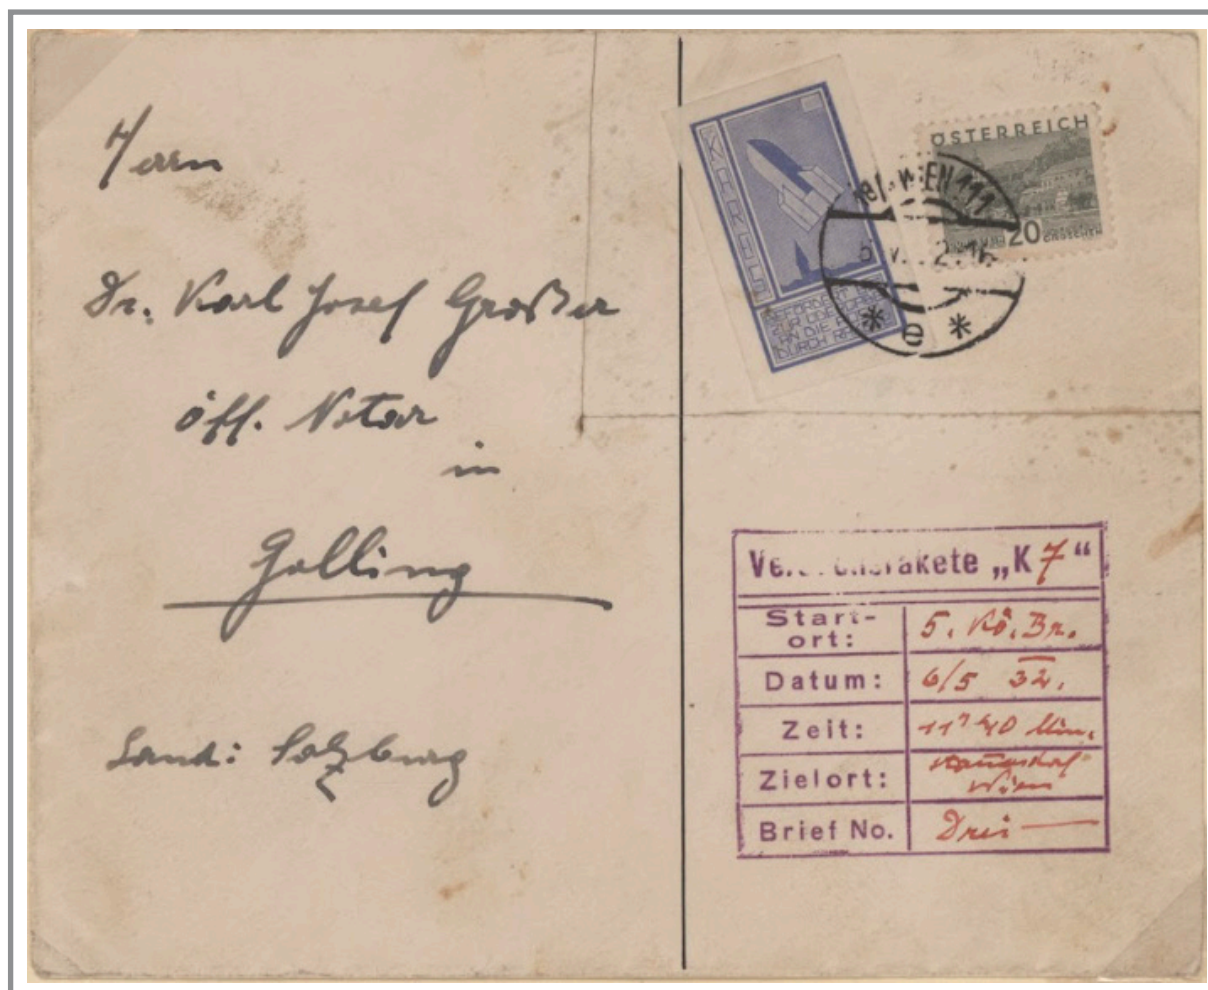 Herrn
Dr. Karl Josef Großer
öff. Notar
in
Golling
Land: Salzburg
ÖSTERREICH
20
WIEN 111
* e *
BEFÖRDERT
ZUR
AN DIE
DURCH
"K 7"
Start-
ort: 5. Kö. Br.
Datum: 6/5 32.
Zeit: 11h 40 Min.
Zielort:
Wien
Brief No. Drei